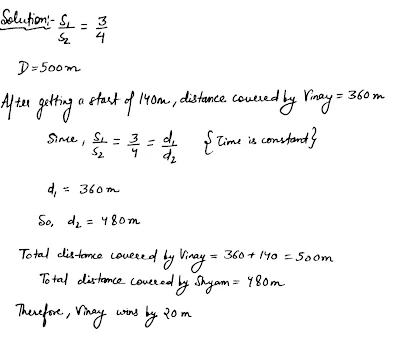 Solution:- S₁/S₂ = 3/4
D = 500m
After getting a start of 140m, distance covered by Vinay = 360m
Since, S₁/S₂ = 3/4 = d₁/d₂ {Time is constant}
d₁ = 360m
So, d₂ = 480m
Total distance covered by Vinay = 360 + 140 = 500m
Total distance covered by Shyam = 480m
Therefore, Vinay wins by 20 m